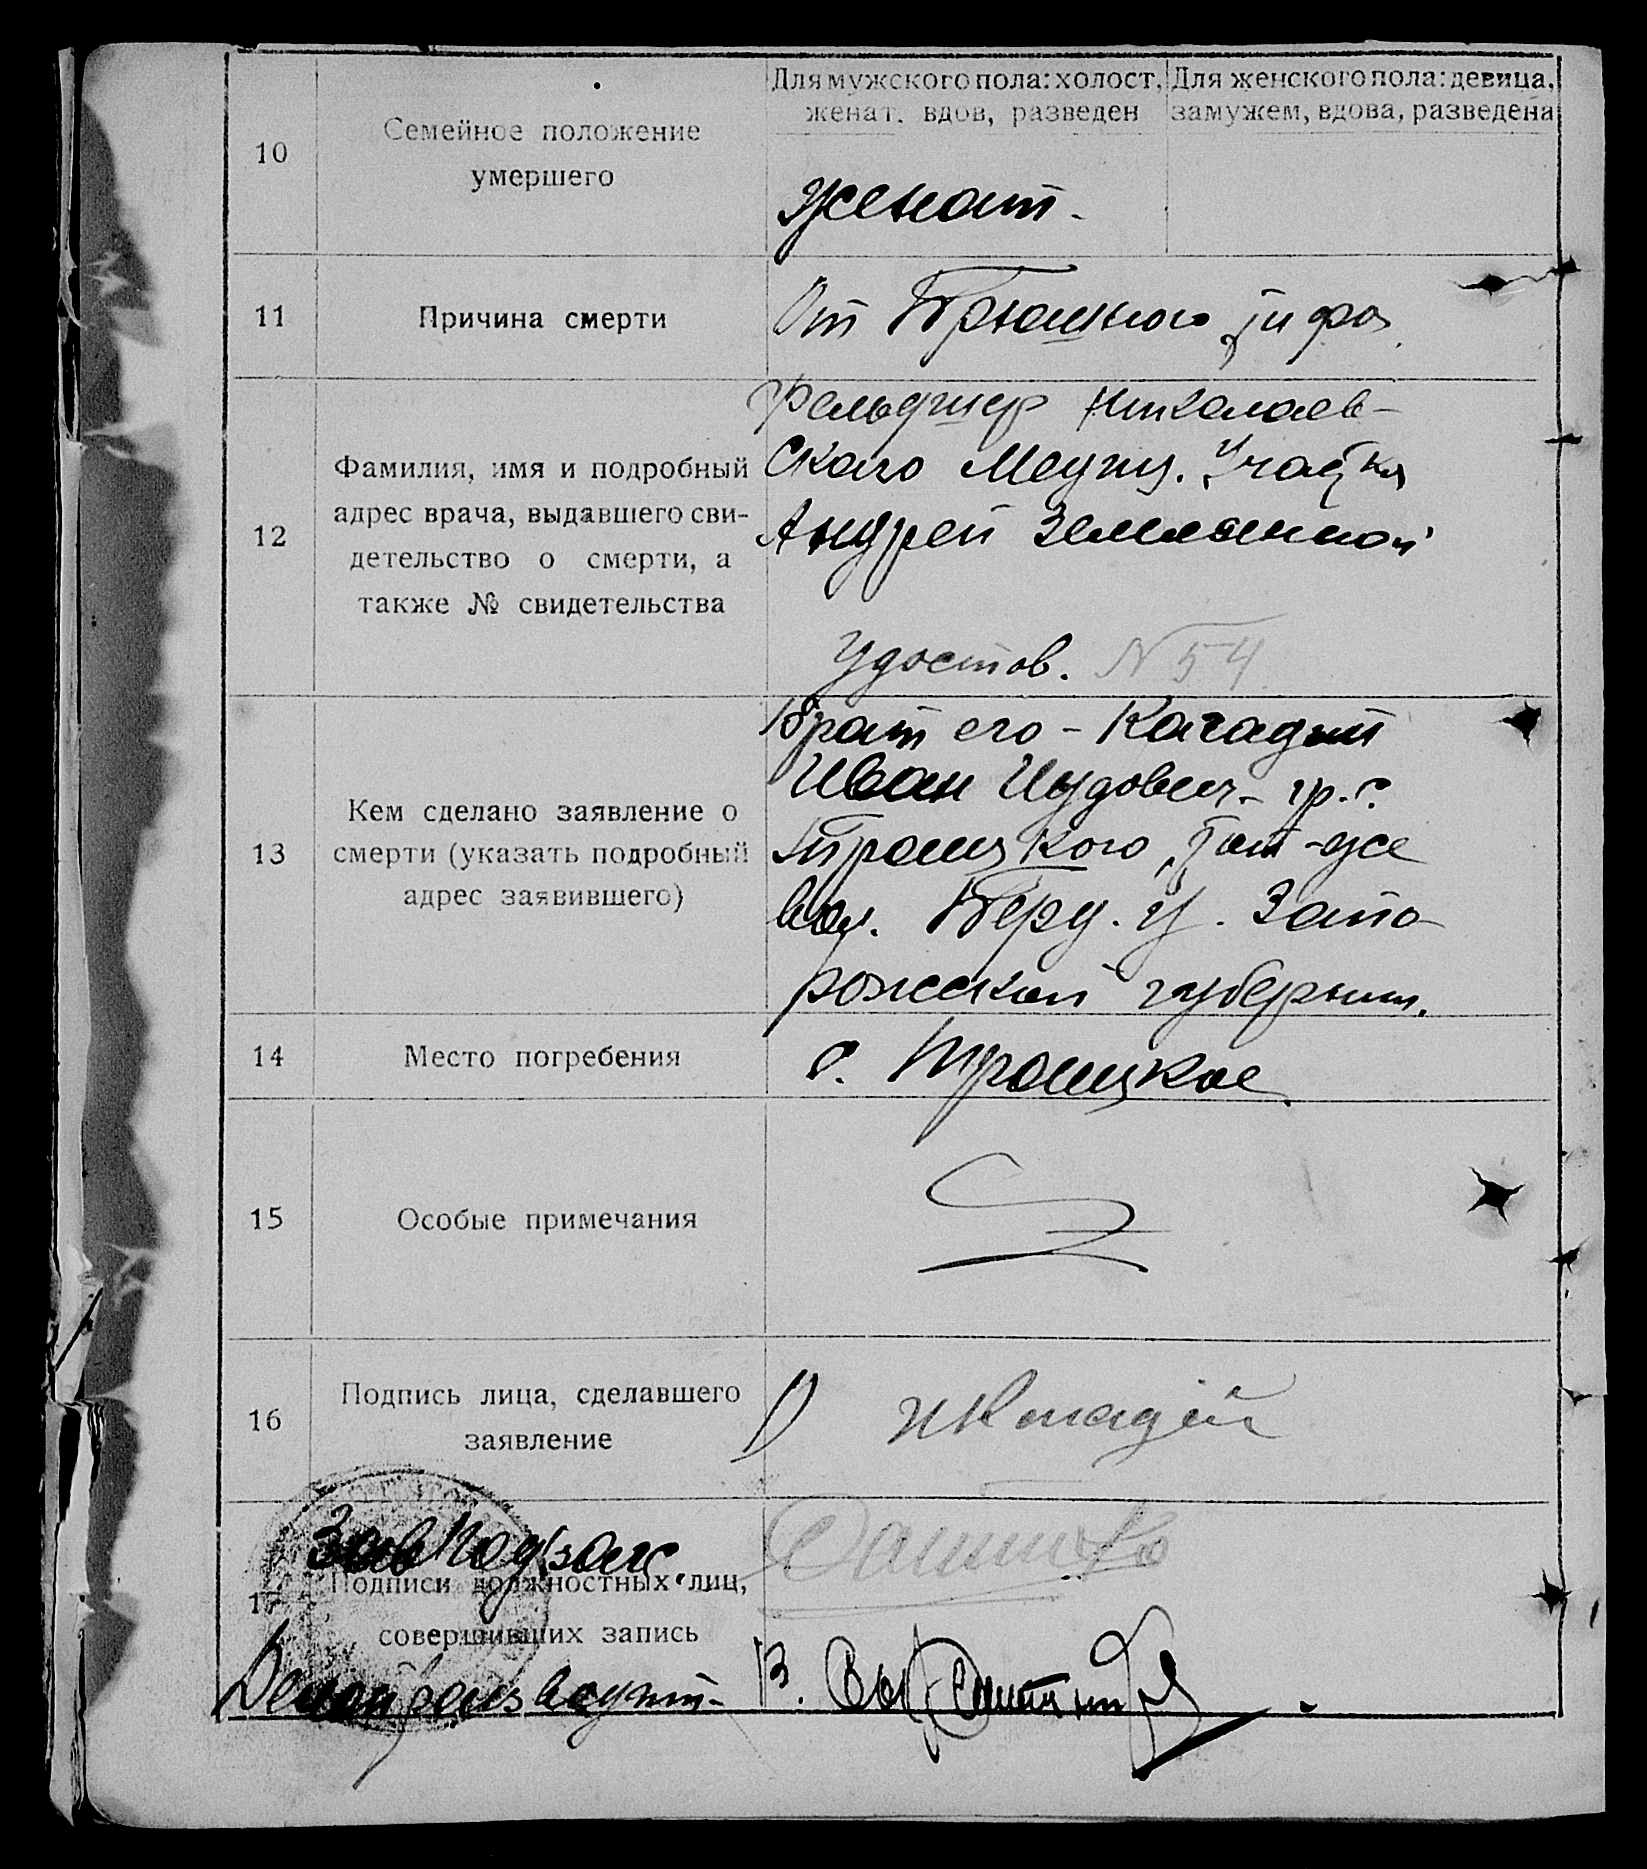 Для мужского пола: холост,
женат, вдов, разведен
Для женского пола: девица,
замужем, вдова, разведена
10
Семейное положение
умершего
Женат.
11
Причина смерти
От Брюшного тифа.
12
Фамилия, имя и подробный
адрес врача, выдавшего сви-
детельство о смерти, а
также № свидетельства
Фельдшер Николаев-
ского Медиц. Участка
Андрей Землянной
Удостов. №54
13
Кем сделано заявление о
смерти (указать подробный
адрес заявившего)
Брат его - Качадий
Иван Иудович - гр. с.
Троицкого, той-же
вол. Берд. у. Запо-
рожской губернии.
14
Место погребения
с. Троицкое
15
Особые примечания
16
Подпись лица, сделавшего
заявление
17
Подписи должностных лиц,
совершивших запись
Зав Подзагс.
Делопроизводит.